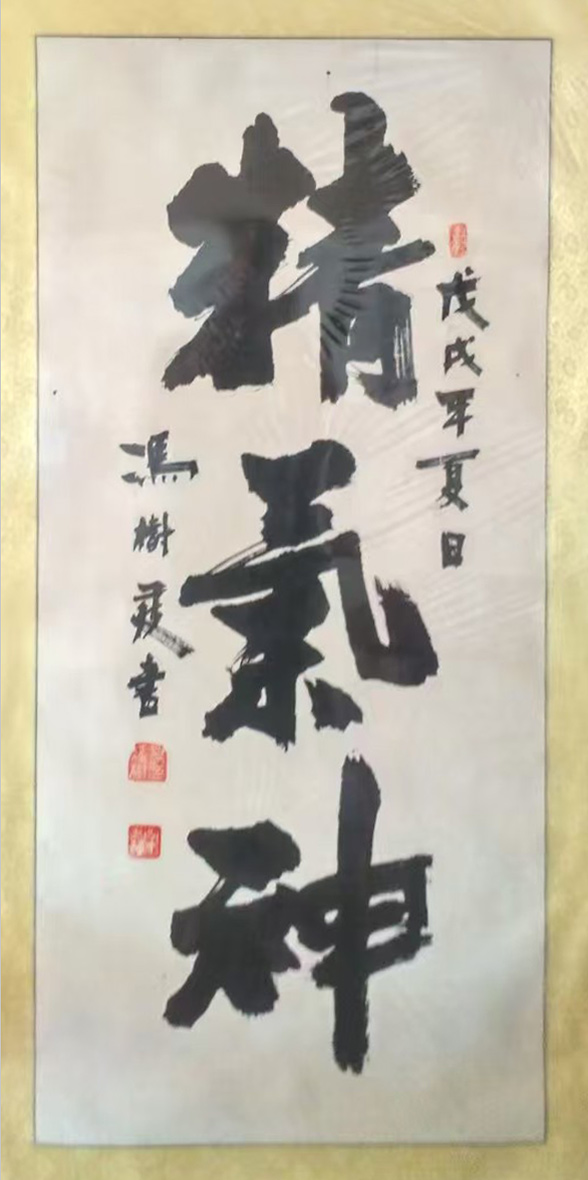 戊戌年夏日
精氣神
馮樹葰書